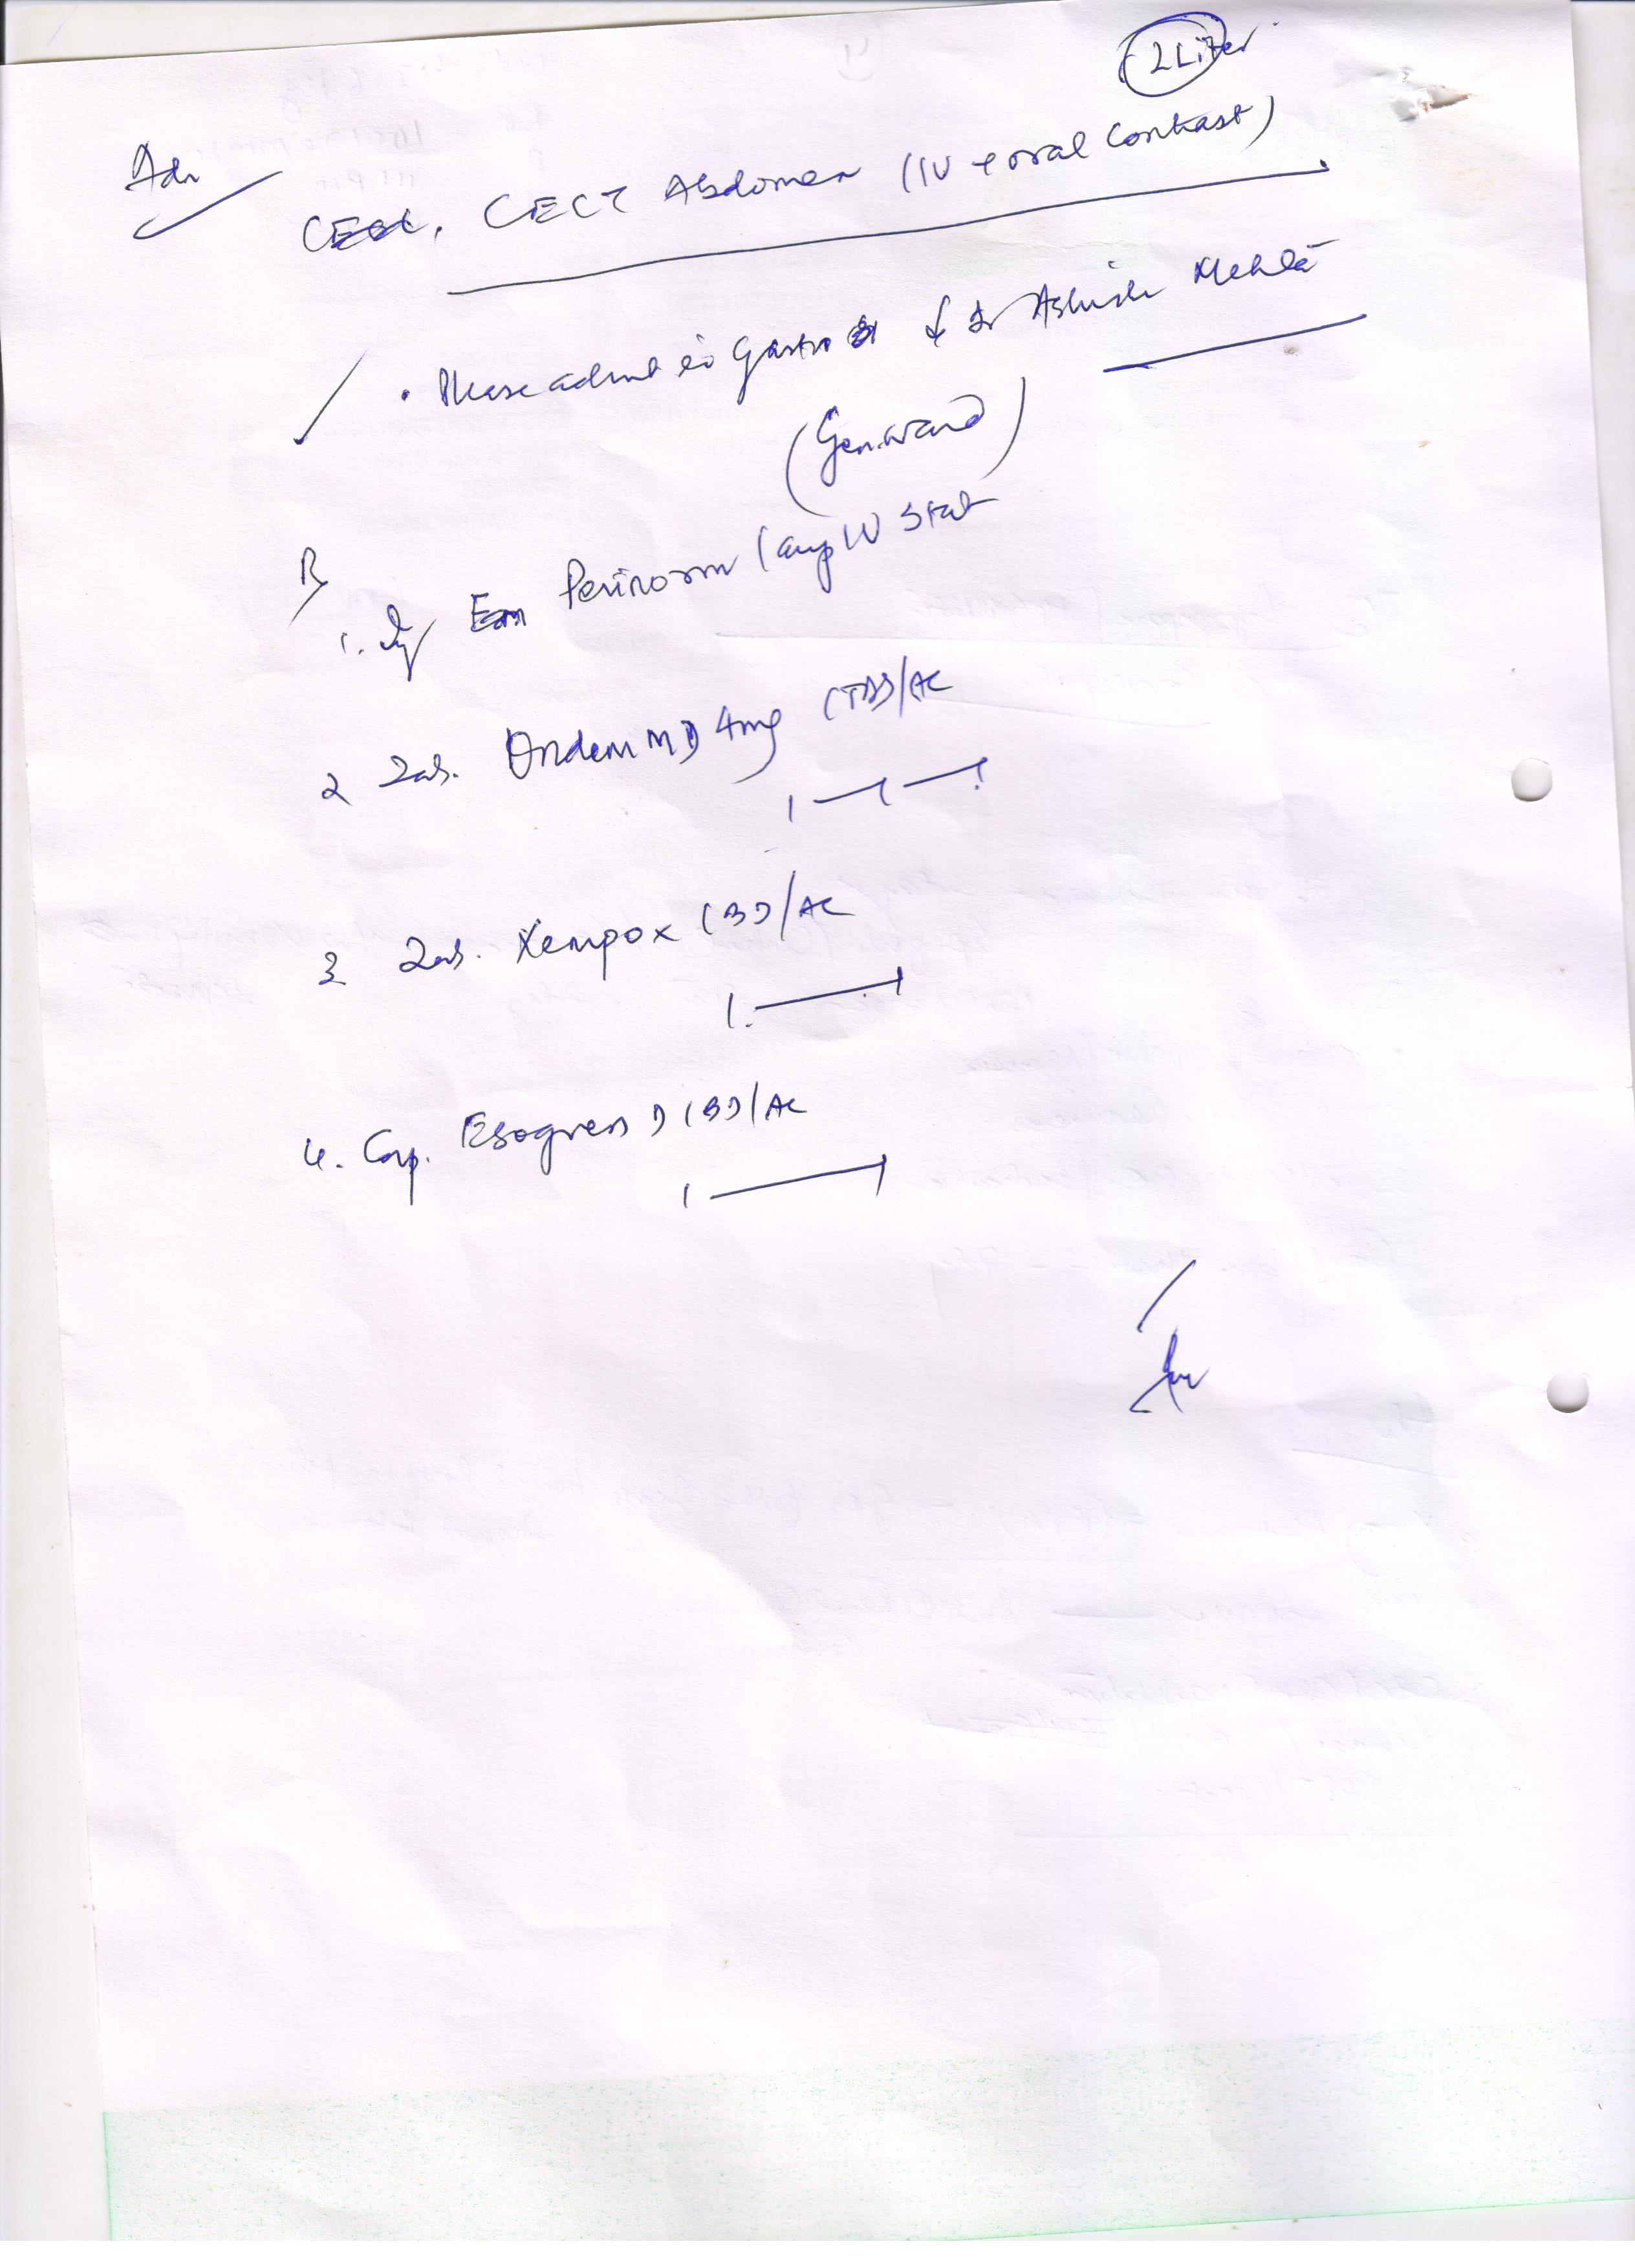 2 Liter
Adv
CECT Abdomen (IV + oral contrast)
• Please admit in Gastro Dr Ashish Mehta
(Gen. ward)
R
1. Inj Perinorm 1 amp IV Stat
2 Tab. Ondem MD 4mg (TDS)/AC
1 — 1 — 1
3 Tab. Xempox (BD)/AC
1 — 1
4. Cap. Esogress D (BD)/AC
1 — 1